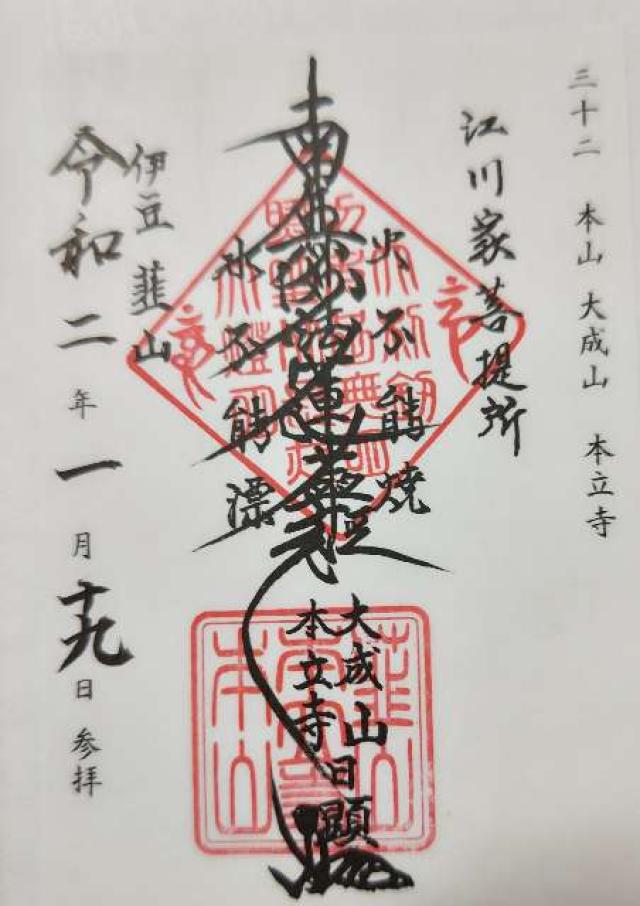 三十二 本山 大成山 本立寺
江川家菩提所
火不能焼
南無妙法蓮華経
水不能漂
大成山
本立寺
日顕
伊豆 韮山
令和二年一月十九日 参拝
韮山
本立寺
本山